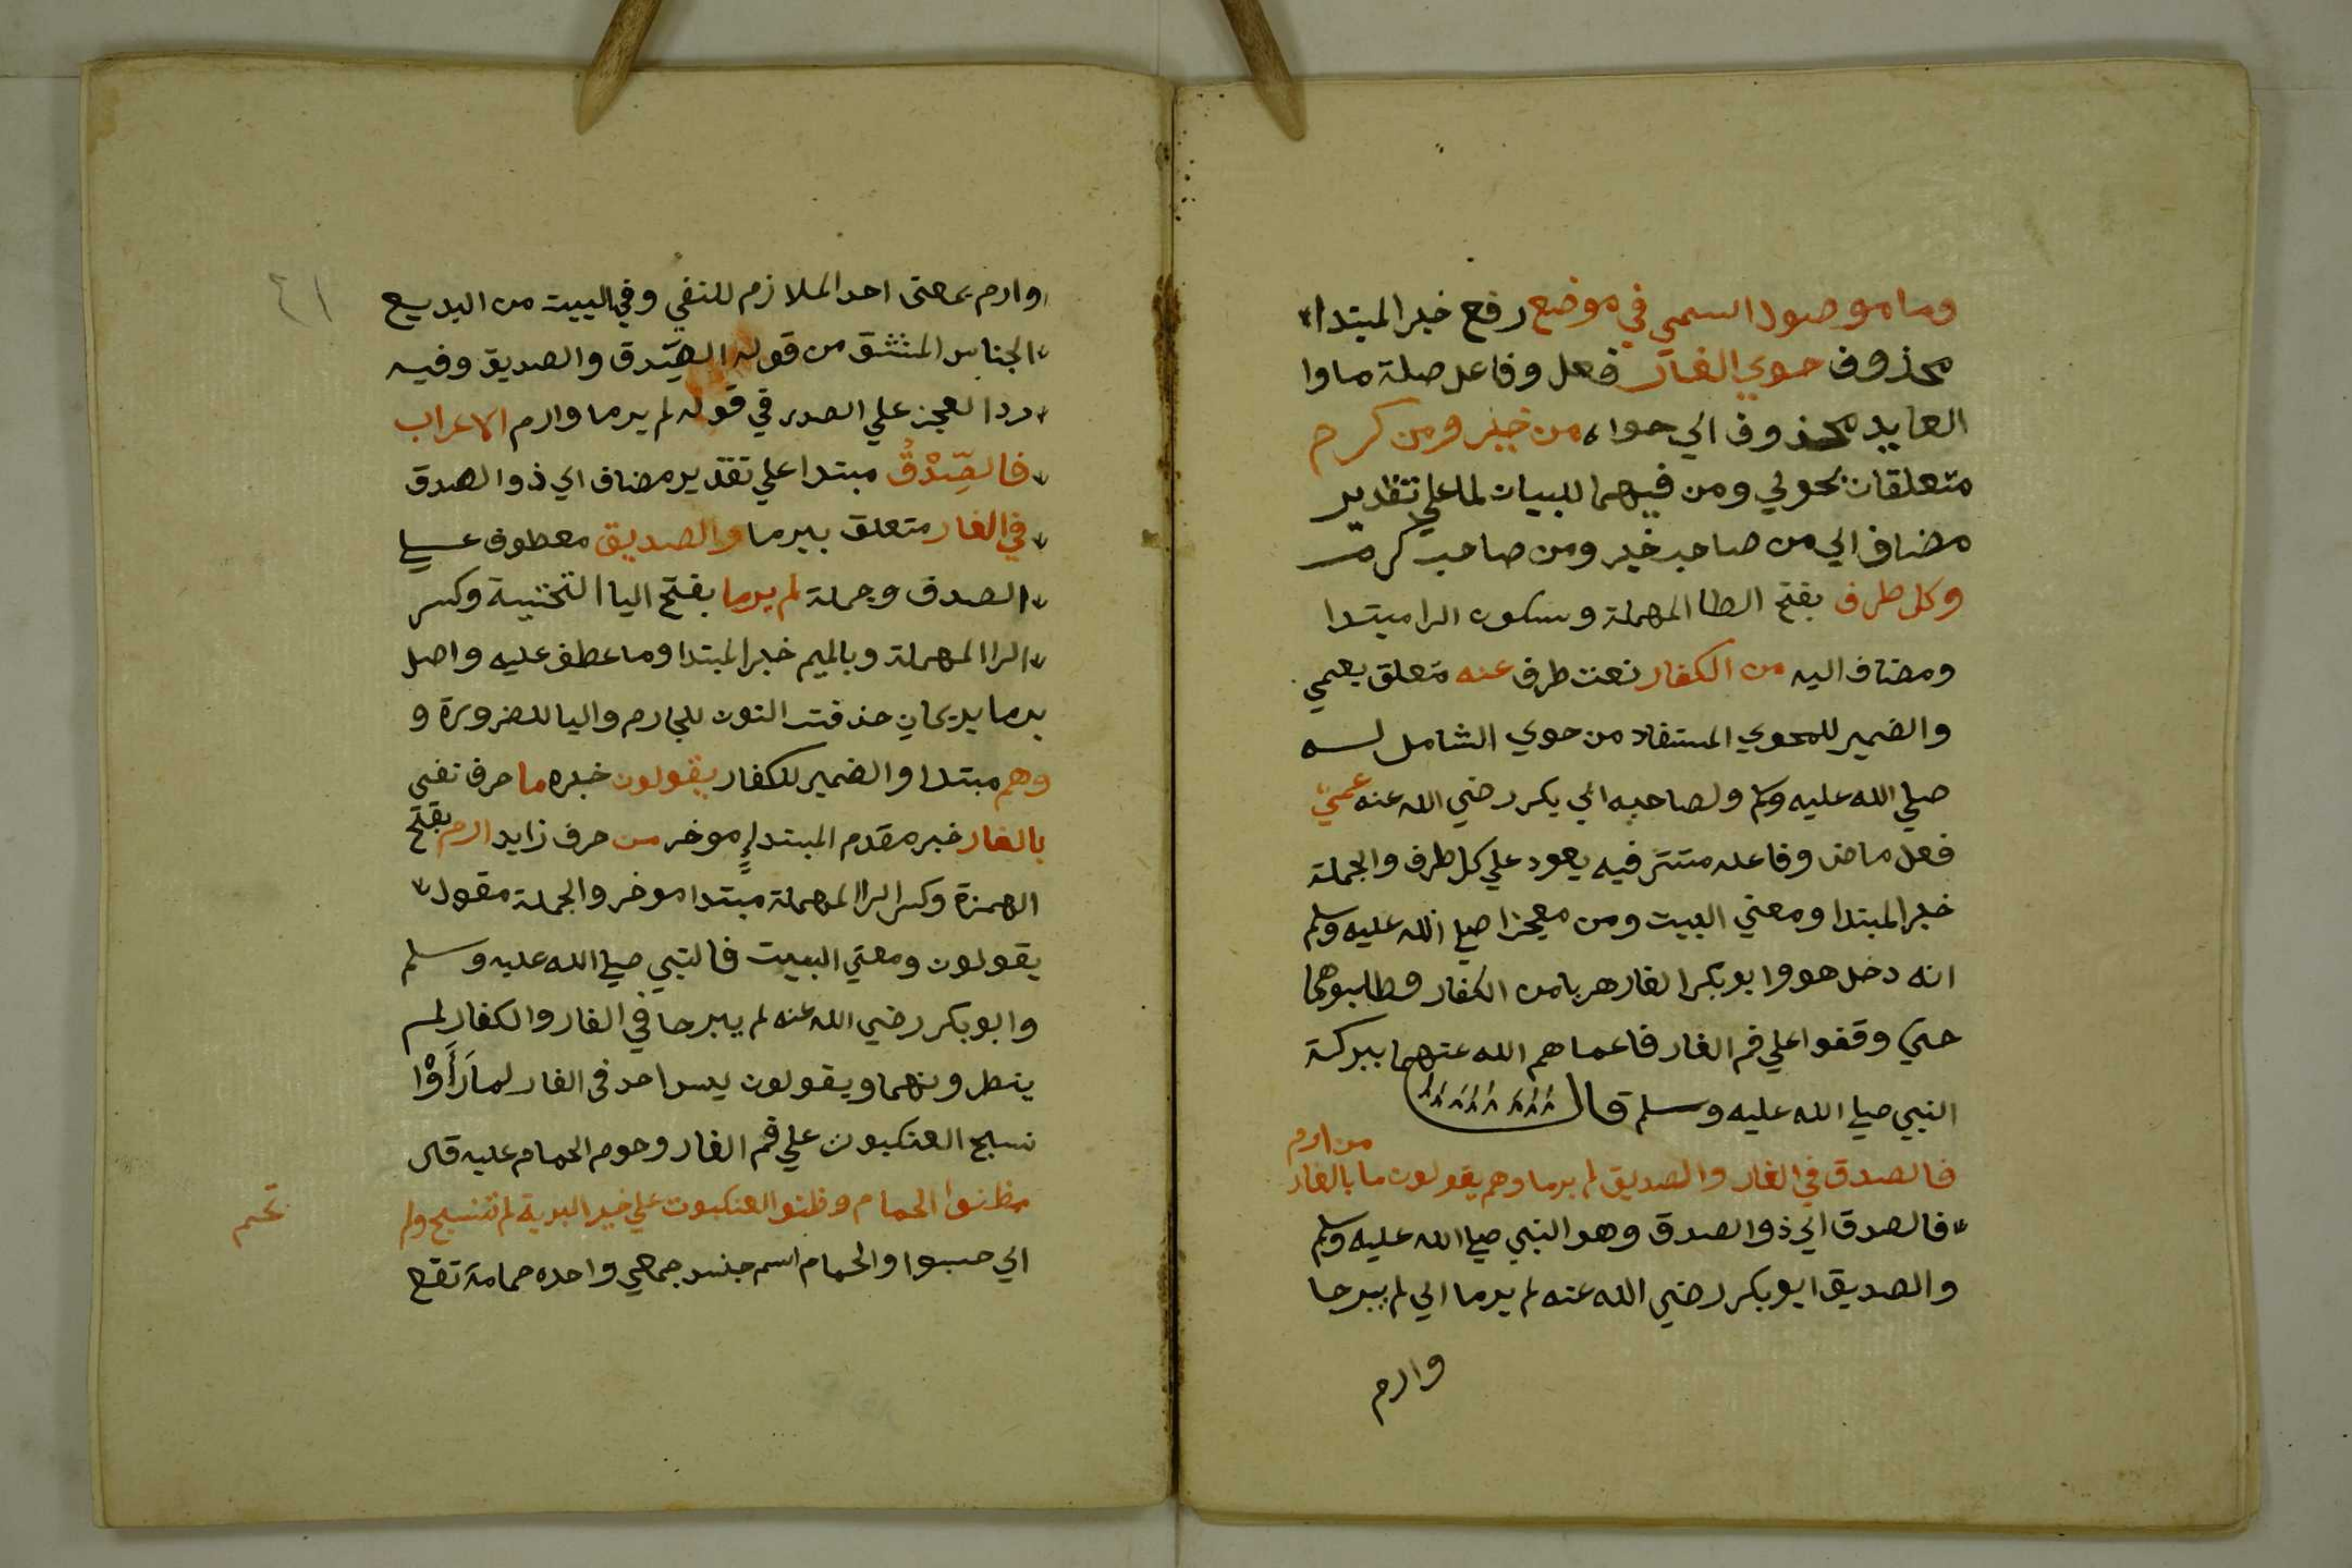 وما موصول اسمي في موضع رفع خبر المبتدا
محذوف حوي الغار فعل وفاعل صلة ما وا
العايد محذوف اي حواه من خير ومن كرم
متعلقان بحوي ومن فيهما للبيان لما علي تقدير
مضاف اي من صاحب خير ومن صاحب كرم
وكل طرف بفتح الطا المهملة وسكون الرا مبتدا
ومضاف اليه من الكفار نعت طرف عنه متعلق بعمي
والضمير للمحوي المستفاد من حوي الشامل له
صلي الله عليه وسلم ولصاحبه ابي بكر رضي الله عنه عمي
فعل ماض وفاعله مستتر فيه يعود علي كل طرف والجملة
خبر المبتدا ومعني البيت ومن معجزا صلي الله عليه وسلم
انه دخل هو وابو بكر الغار هربا من الكفار وطلبوهما
حتي وقفوا علي فم الغار فاعماهم الله عنهما ببركة
النبي صلي الله عليه وسلم قال
من ارم
فالصدق في الغار والصديق لم يرما وهم يقولون ما بالغار
فالصدق اي ذو الصدق وهو النبي صلي الله عليه وسلم
والصديق ابو بكر رضي الله عنه لم يرما اي لم يبرحا
وارم
٤١
وارم بمعنى احد الملازم للنفي وفي البيت من البديع
الجناس المشتق من قوله الصدق والصديق وفيه
رد العجز علي الصدر في قوله لم يرما وارم الاعراب
فالصِّدْقُ مبتدا علي تقدير مضاف اي ذو الصدق
في الغار متعلق بيرما والصديق معطوف علي
الصدق وجملة لم يرما بفتح اليا التحتية وكسر
الرا المهملة وبالميم خبر المبتدا وما عطف عليه واصل
يرما يريمان حذفت النون للجازم واليا للضرورة و
وهم مبتدا والضمير للكفار يقولون خبره ما حرف نفي
بالغار خبر مقدم المبتدا موخر من حرف زايد ارم بفتح
الهمزة وكسر الرا المهملة مبتدا موخر والجملة مقول
يقولون ومعني البيت فالنبي صلي الله عليه وسلم
وابو بكر رضي الله عنه لم يبرحا في الغار والكفار لم
ينظرونهما ويقولون ليس احد في الغار لما رَأَوْا
نسج العنكبوت علي فم الغار وحوم الحمام عليه قال
ظنوا الحمام وظنوا العنكبوت علي خير البرية لم تنسج ولم
تحم
اي حسبوا والحمام اسم جنس جمعي واحده حمامة تقع